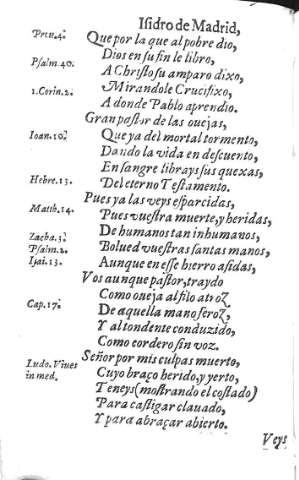 Isidro de Madrid,
Prou.4.
Que por la que al pobre dio,
Dios en su fin le libro,
Psalm.40.
A Christo su amparo dixo,
1.Corin.2.
Mirandole Crucifixo,
A donde Pablo aprendio.
Gran pastor de las ouejas,
Ioan.10.
Que ya del mortal tormento,
Dando la vida en descuento,
En sangre librays sus quexas,
Hebre.13.
Del eterno Testamento.
Pues ya las veys esparcidas,
Matth.14.
Pues vuestra muerte, y heridas,
Zacha.3.
De humanos tan inhumanos,
Psalm.2.
Bolued vuestras santas manos,
Isai.13.
Aunque en esse hierro asidas,
Vos aunque pastor, traydo
Como oueja al filo atroz,
Cap.17.
De aquella mano feroz,
Y al tondente conduzido,
Como cordero sin voz.
Señor por mis culpas muerto,
Ludo.Viues
Cuyo braço herido, y yerto,
in med.
Teneys (mostrando el costado)
Para castigar clauado,
Y para abraçar abierto.
Veys